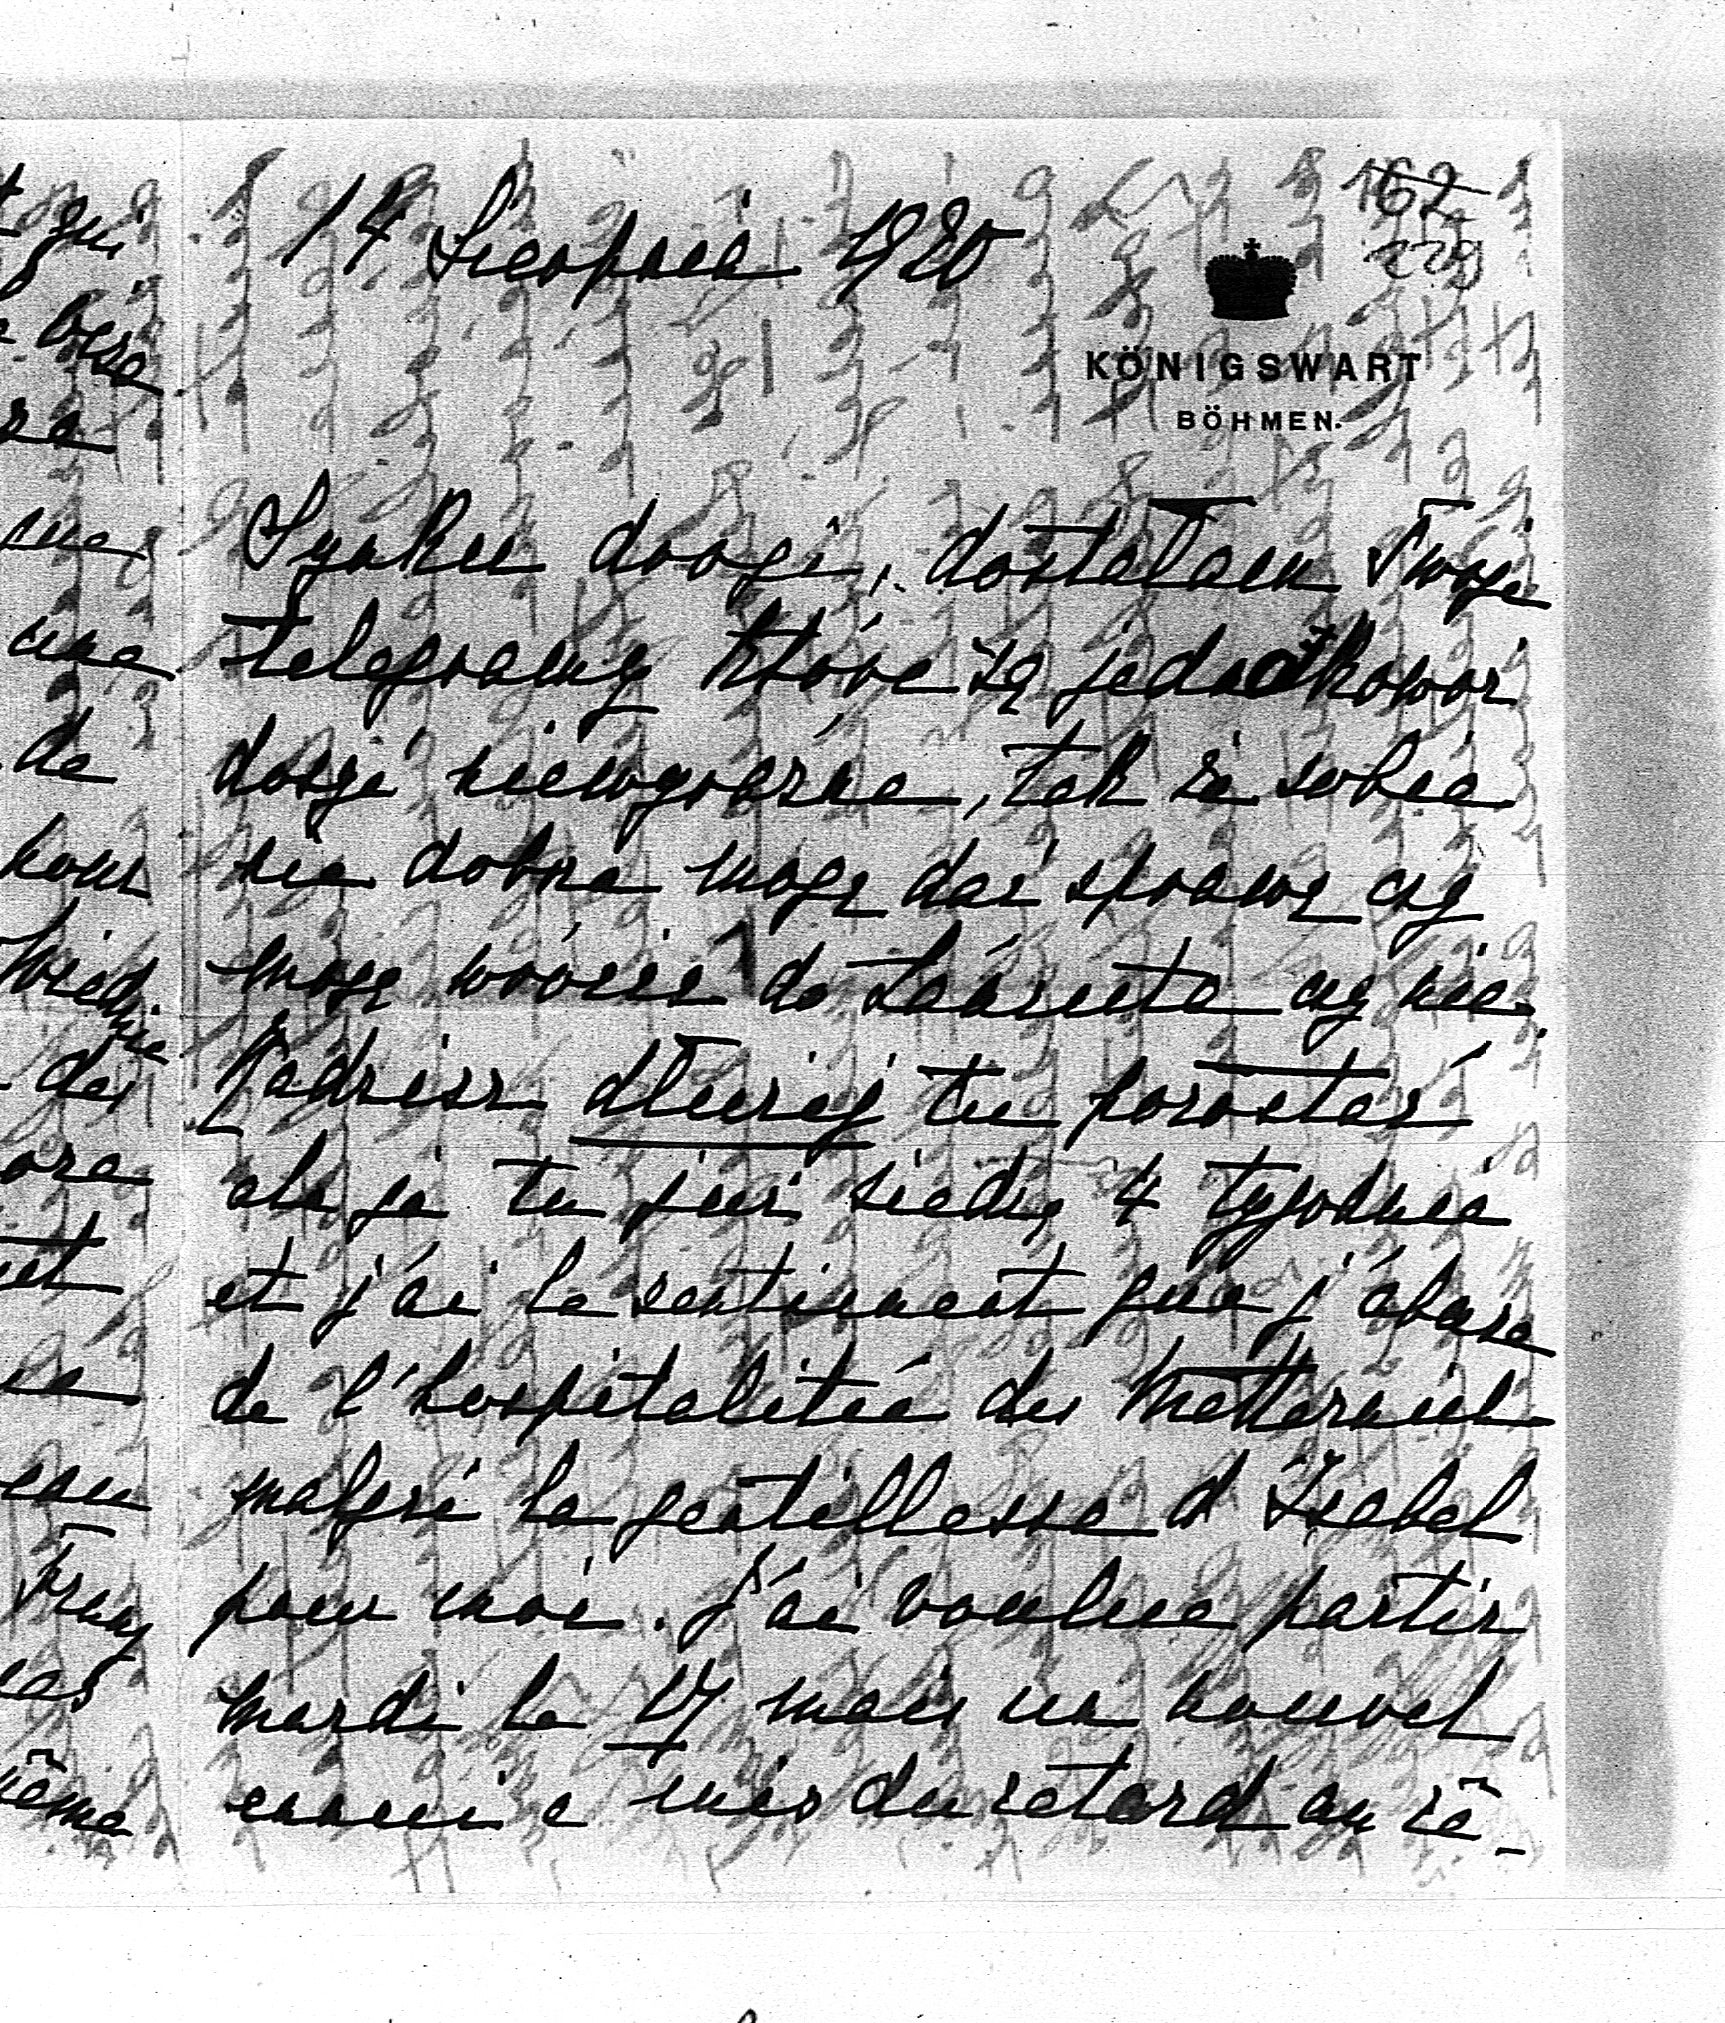 14 Sierpnia 1920
162
229
KÖNIGSWART
BÖHMEN.
Synku drogi, dostałam Twoje
telegramy które są jednakowoż
dosyć niewyraźne, tak że sobie
nie dobrze mogę dać sprawę czy
mogę wrócić do Łańcuta czy nie.
Radzisz dłużej tu pozostać
ale ja tu już siedzę 4 tygodnie
et j'ai le sentiment que j'abuse
de l'hospitalité des Metternich
malgré la gentillesse d'Isabel
pour moi. J'ai voulue partir
mardi le 17 mais un nouvel
ennui a mis du retard au ré-